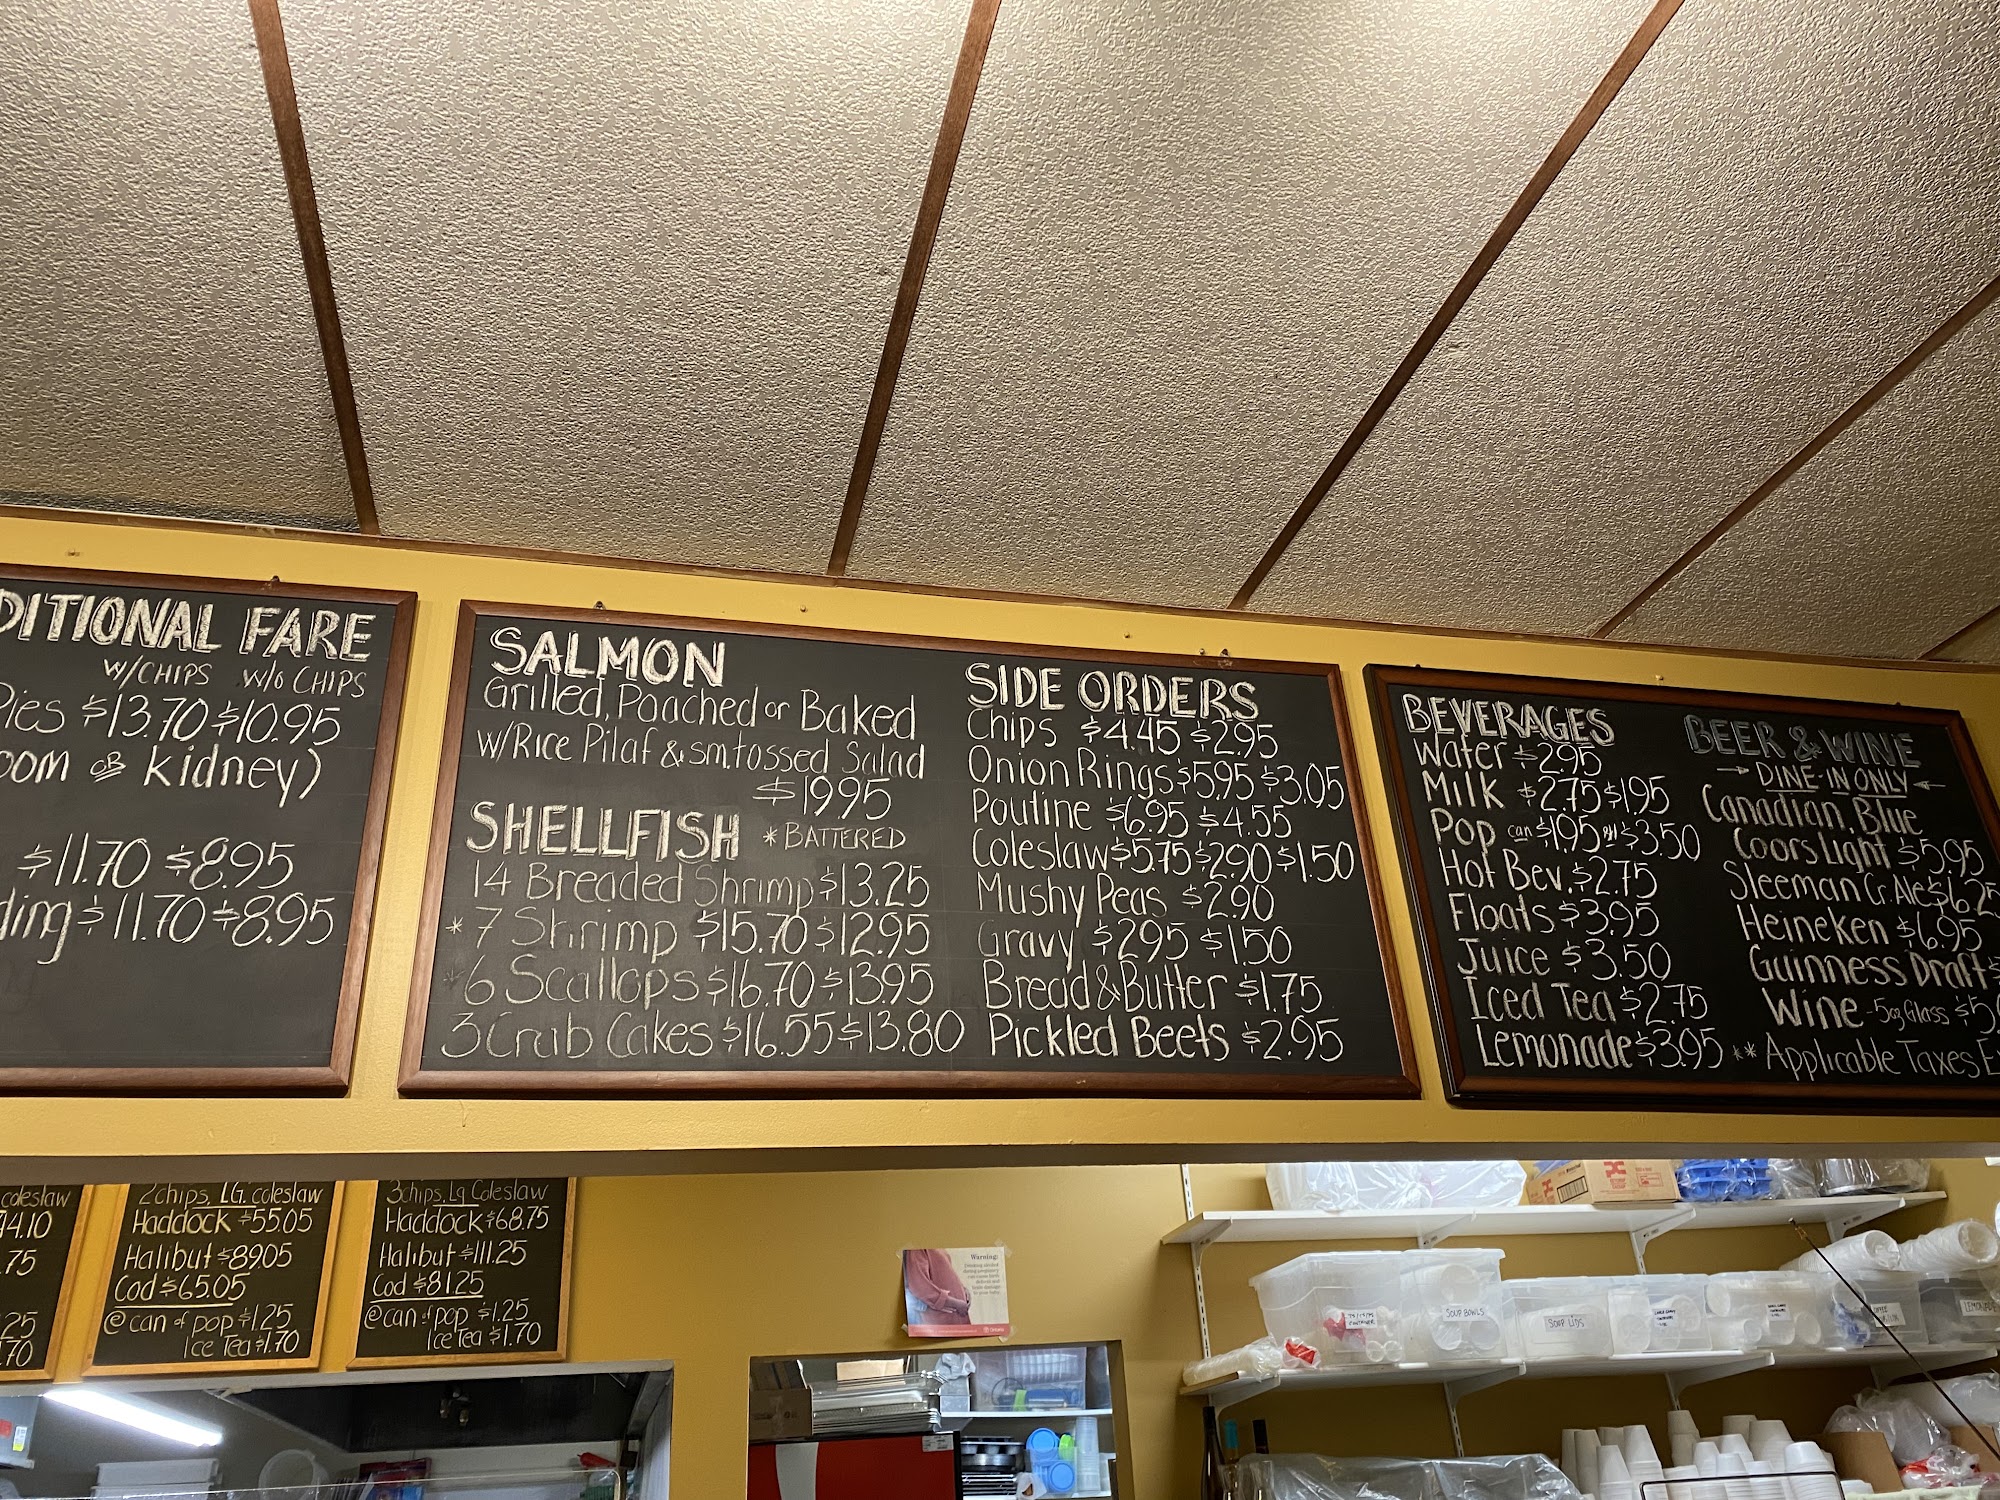 DITIONAL FARE
W/CHIPS W/O CHIPS
Pies $13.70 $10.95
oom OR kidney)
$11.70 $8.95
ding $11.70 $8.95
SALMON
Grilled, Poached or Baked
W/Rice Pilaf & sm. tossed Salad
$19.95
SHELLFISH *BATTERED
14 Breaded Shrimp $13.25
*7 Shrimp $15.70 $12.95
*6 Scallops $16.70 $13.95
3 Crab Cakes $16.55 $13.80
SIDE ORDERS
Chips $4.45 $2.95
Onion Rings $5.95 $3.05
Poutine $6.95 $4.55
Coleslaw $5.75 $2.90 $1.50
Mushy Peas $2.90
Gravy $2.95 $1.50
Bread & Butter $1.75
Pickled Beets $2.95
BEVERAGES
Water $2.95
Milk $2.75 $1.95
Pop can $1.95 $3.50
Hot Bev. $2.75
Floats $3.95
Juice $3.50
Iced Tea $2.75
Lemonade $3.95
BEER & WINE
DINE-IN ONLY
Canadian, Blue
Coors Light $5.95
Sleeman Cr. Ale $6.25
Heineken $6.95
Guinness Draft $
Wine - 5oz Glass $5
** Applicable Taxes E
coleslaw
4.10
.75
25
.70
2 chips, LG. coleslaw
Haddock $55.05
Halibut $89.05
Cod $65.05
@ can of pop $1.25
Ice Tea $1.70
3 chips, Lg Coleslaw
Haddock $68.75
Halibut $111.25
Cod $81.25
@ can of pop $1.25
Ice Tea $1.70
Warning:
SOUP BOWLS
SOUP LIDS
LEMONADE